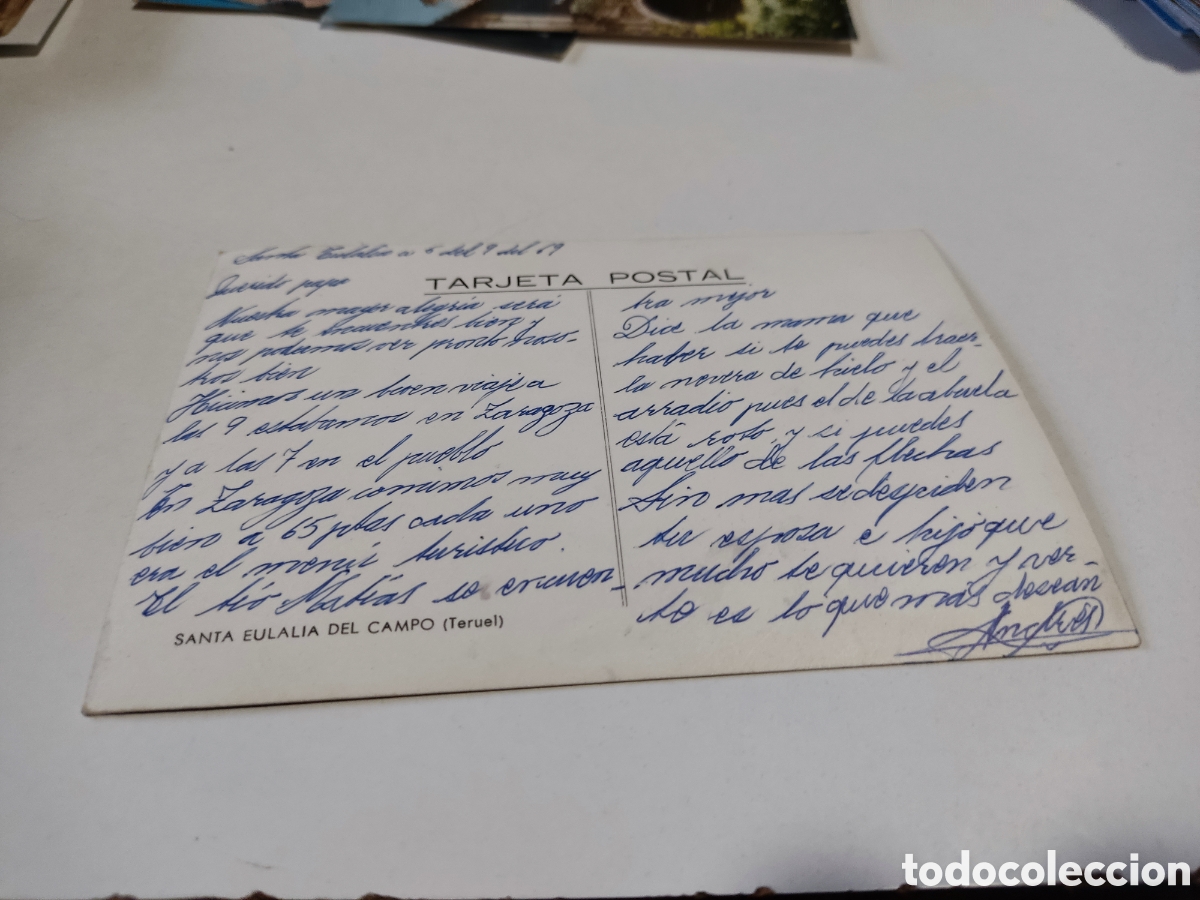 Santa Eulalia a 5 del 9 del 69
TARJETA POSTAL
Querido papa
Nuestra mayor alegria será
que te encuentres bien y
nos podamos ver pronto noso-
tros bien
Hicimos un buen viaje a
las 9 estabamos en Zaragoza
y a las 7 en el pueblo
En Zaragoza comimos muy
bien a 65 ptas cada uno
era el menú turistico.
El tió Matías se encuen-
tra mejor
Dice la mama que
haber si te puedes traer
la nevera de hielo y el
arradio pues el de la abuela
está roto, y si puedes
aquello de las flechas
Sin mas se despiden
tu esposa e hijo que
mucho te quieren y ver-
te es lo que más desean
Andrés
SANTA EULALIA DEL CAMPO (Teruel)
todocoleccion